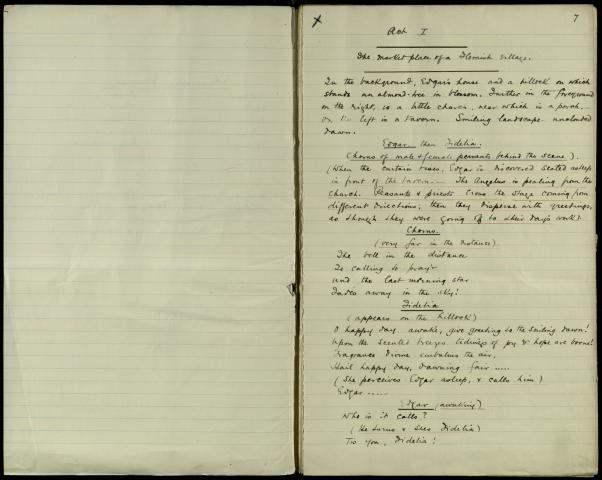 7
x
Act I
The market place of a Flemish village.
In the background, Edgar's house and a hillock on which
stands an almond-tree in blossom. Further in the foreground
on the right, is a little church, near which is a porch.
On the left is a tavern. Smiling landscape unclouded
dawn.
Edgar then Fidelia.
Chorus of male & female peasants behind the scene).
(When the curtain rises, Edgar is discovered seated asleep
in front of the tavern. The Angelus is pealing from the
church. Peasants & priests cross the stage coming from
different directions; then they disperse with greetings,
as though they were going off to their day's work).
Chorus.
(very far in the distance)
The bell in the distance
Is calling to pray'r
and the last morning star
Fades away in the sky!
Fidelia
(appears on the hillock)
O happy day awake, give greeting to the smiling dawn!
Upon the scented breezes tidings of joy & hope are borne!
Fragrance divine embalms the air,
Hail happy day, dawning fair .....
(She perceives Edgar asleep, & calls him)
Edgar .....
Edgar (awaking)
Who is it calls?
(He turns & sees Fidelia)
Tis you, Fidelia!